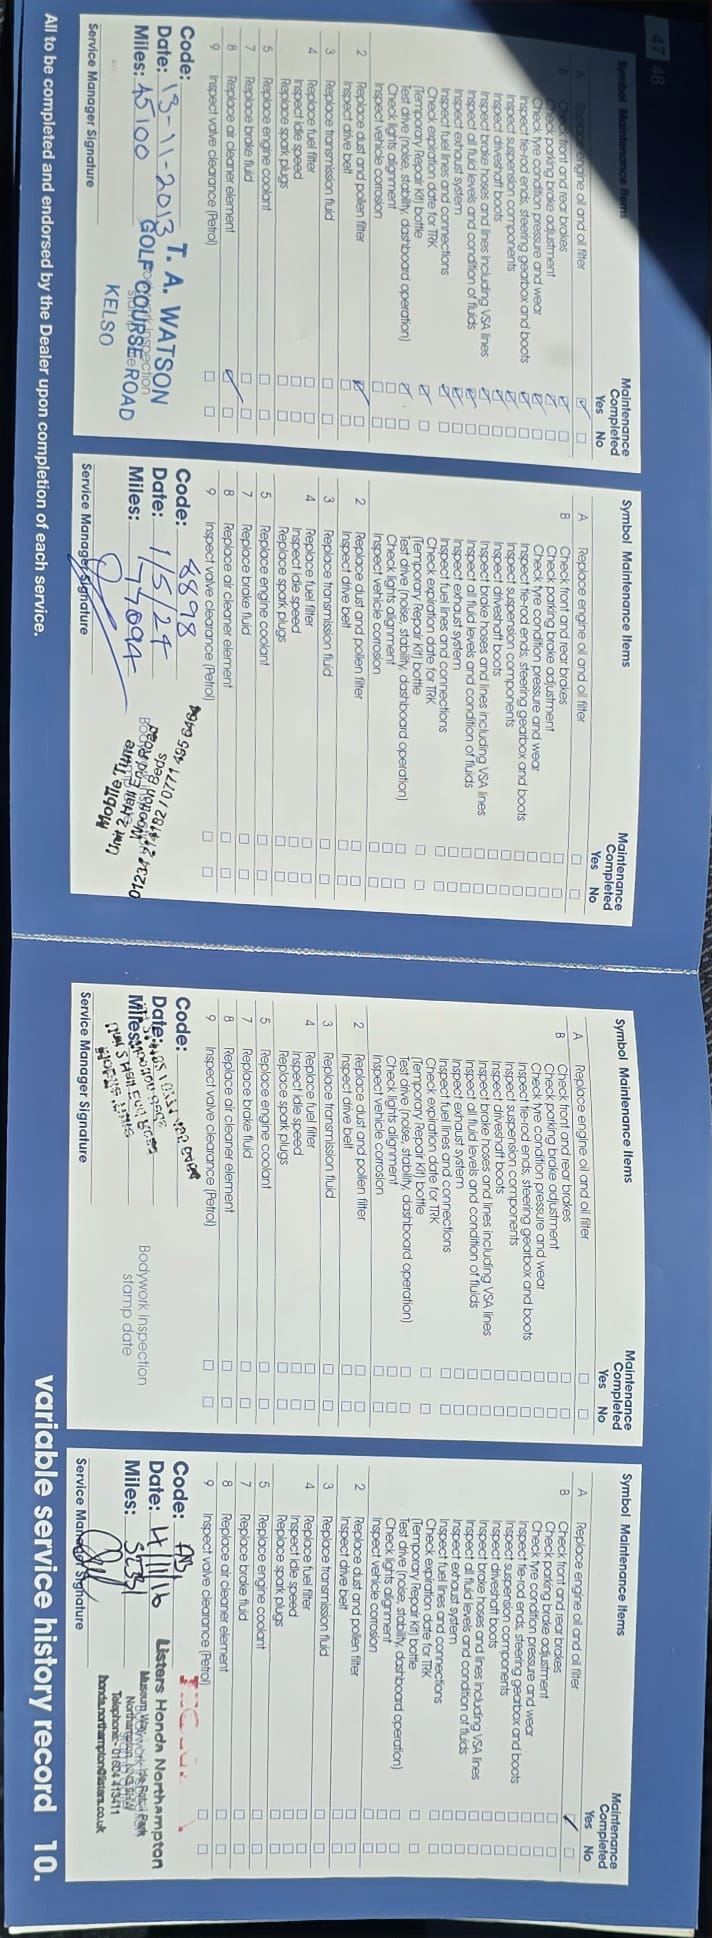 47 48
Symbol Maintenance Items
Maintenance
Completed
Yes No
A Replace engine oil and oil filter
B Check front and rear brakes
Check parking brake adjustment
Check tyre condition pressure and wear
Inspect tie-rod ends, steering gearbox and boots
Inspect suspension components
Inspect driveshaft boots
Inspect brake hoses and lines including VSA lines
Inspect all fluid levels and condition of fluids
Inspect exhaust system
Inspect fuel lines and connections
Check expiration date for TRK
(Temporary Repair Kit) bottle
Test drive (noise, stability, dashboard operation)
Check lights alignment
Inspect vehicle corrosion
2 Replace dust and pollen filter
Inspect drive belt
3 Replace transmission fluid
4 Replace fuel filter
Inspect idle speed
Replace spark plugs
5 Replace engine coolant
7 Replace brake fluid
8 Replace air cleaner element
9 Inspect valve clearance (Petrol)
Code:
Date: 13-11-2013
Miles: 45100
T. A. WATSON
GOLF COURSE ROAD
KELSO
Service Manager Signature
Symbol Maintenance Items
Maintenance
Completed
Yes No
A Replace engine oil and oil filter
B Check front and rear brakes
Check parking brake adjustment
Check tyre condition pressure and wear
Inspect tie-rod ends, steering gearbox and boots
Inspect suspension components
Inspect driveshaft boots
Inspect brake hoses and lines including VSA lines
Inspect all fluid levels and condition of fluids
Inspect exhaust system
Inspect fuel lines and connections
Check expiration date for TRK
(Temporary Repair Kit) bottle
Test drive (noise, stability, dashboard operation)
Check lights alignment
Inspect vehicle corrosion
2 Replace dust and pollen filter
Inspect drive belt
3 Replace transmission fluid
4 Replace fuel filter
Inspect idle speed
Replace spark plugs
5 Replace engine coolant
7 Replace brake fluid
8 Replace air cleaner element
9 Inspect valve clearance (Petrol)
Code: 8898
Date: 1/5/24
Miles: 77094
Mobile Tyre
Service Manager Signature
Symbol Maintenance Items
Maintenance
Completed
Yes No
A Replace engine oil and oil filter
B Check front and rear brakes
Check parking brake adjustment
Check tyre condition pressure and wear
Inspect tie-rod ends, steering gearbox and boots
Inspect suspension components
Inspect driveshaft boots
Inspect brake hoses and lines including VSA lines
Inspect all fluid levels and condition of fluids
Inspect exhaust system
Inspect fuel lines and connections
Check expiration date for TRK
(Temporary Repair Kit) bottle
Test drive (noise, stability, dashboard operation)
Check lights alignment
Inspect vehicle corrosion
2 Replace dust and pollen filter
Inspect drive belt
3 Replace transmission fluid
4 Replace fuel filter
Inspect idle speed
Replace spark plugs
5 Replace engine coolant
7 Replace brake fluid
8 Replace air cleaner element
9 Inspect valve clearance (Petrol)
Code:
Date:
Miles:
Bodywork Inspection
stamp date
Service Manager Signature
Symbol Maintenance Items
Maintenance
Completed
Yes No
A Replace engine oil and oil filter
B Check front and rear brakes
Check parking brake adjustment
Check tyre condition pressure and wear
Inspect tie-rod ends, steering gearbox and boots
Inspect suspension components
Inspect driveshaft boots
Inspect brake hoses and lines including VSA lines
Inspect all fluid levels and condition of fluids
Inspect exhaust system
Inspect fuel lines and connections
Check expiration date for TRK
(Temporary Repair Kit) bottle
Test drive (noise, stability, dashboard operation)
Check lights alignment
Inspect vehicle corrosion
2 Replace dust and pollen filter
Inspect drive belt
3 Replace transmission fluid
4 Replace fuel filter
Inspect idle speed
Replace spark plugs
5 Replace engine coolant
7 Replace brake fluid
8 Replace air cleaner element
9 Inspect valve clearance (Petrol)
Code:
Date: 4/11/16
Miles: 52331
Listers Honda Northampton
Telephone: 01604 413411
honda.northampton@listers.co.uk
Service Manager Signature
All to be completed and endorsed by the Dealer upon completion of each service.
variable service history record 10.